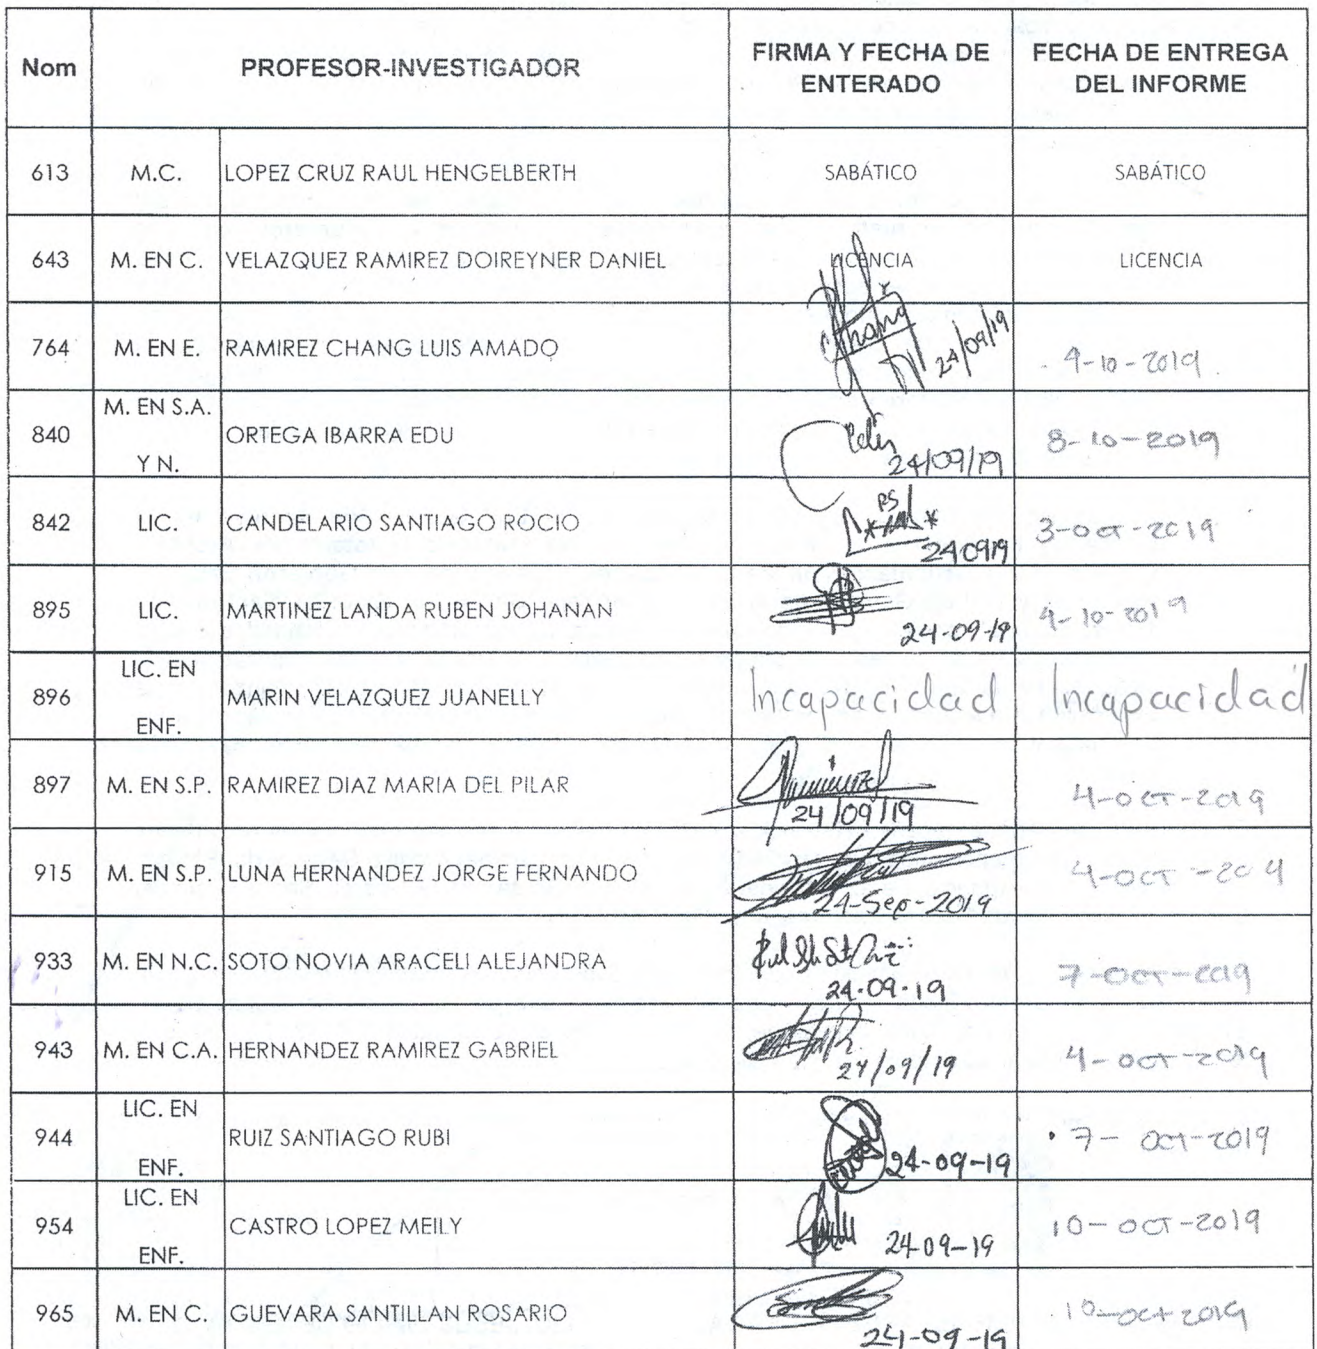 Nom PROFESOR-INVESTIGADOR FIRMA Y FECHA DE ENTERADO FECHA DE ENTREGA DEL INFORME
613 M.C. LOPEZ CRUZ RAUL HENGELBERTH SABÁTICO SABÁTICO
643 M. EN C. VELAZQUEZ RAMIREZ DOIREYNER DANIEL LICENCIA LICENCIA
764 M. EN E. RAMIREZ CHANG LUIS AMADO 24/09/19 4-10-2019
840 M. EN S.A. Y N. ORTEGA IBARRA EDU 24/09/19 8-10-2019
842 LIC. CANDELARIO SANTIAGO ROCIO 240919 3-oct-2019
895 LIC. MARTINEZ LANDA RUBEN JOHANAN 24-09-19 4-10-2019
896 LIC. EN ENF. MARIN VELAZQUEZ JUANELLY Incapacidad Incapacidad
897 M. EN S.P. RAMIREZ DIAZ MARIA DEL PILAR 24/09/19 4-oct-2019
915 M. EN S.P. LUNA HERNANDEZ JORGE FERNANDO 24-Sep-2019 4-oct-2019
933 M. EN N.C. SOTO NOVIA ARACELI ALEJANDRA 24-09-19 7-oct-2019
943 M. EN C.A. HERNANDEZ RAMIREZ GABRIEL 24/09/19 4-oct-2019
944 LIC. EN ENF. RUIZ SANTIAGO RUBI 24-09-19 7-oct-2019
954 LIC. EN ENF. CASTRO LOPEZ MEILY 24-09-19 10-oct-2019
965 M. EN C. GUEVARA SANTILLAN ROSARIO 24-09-19 10-oct 2019